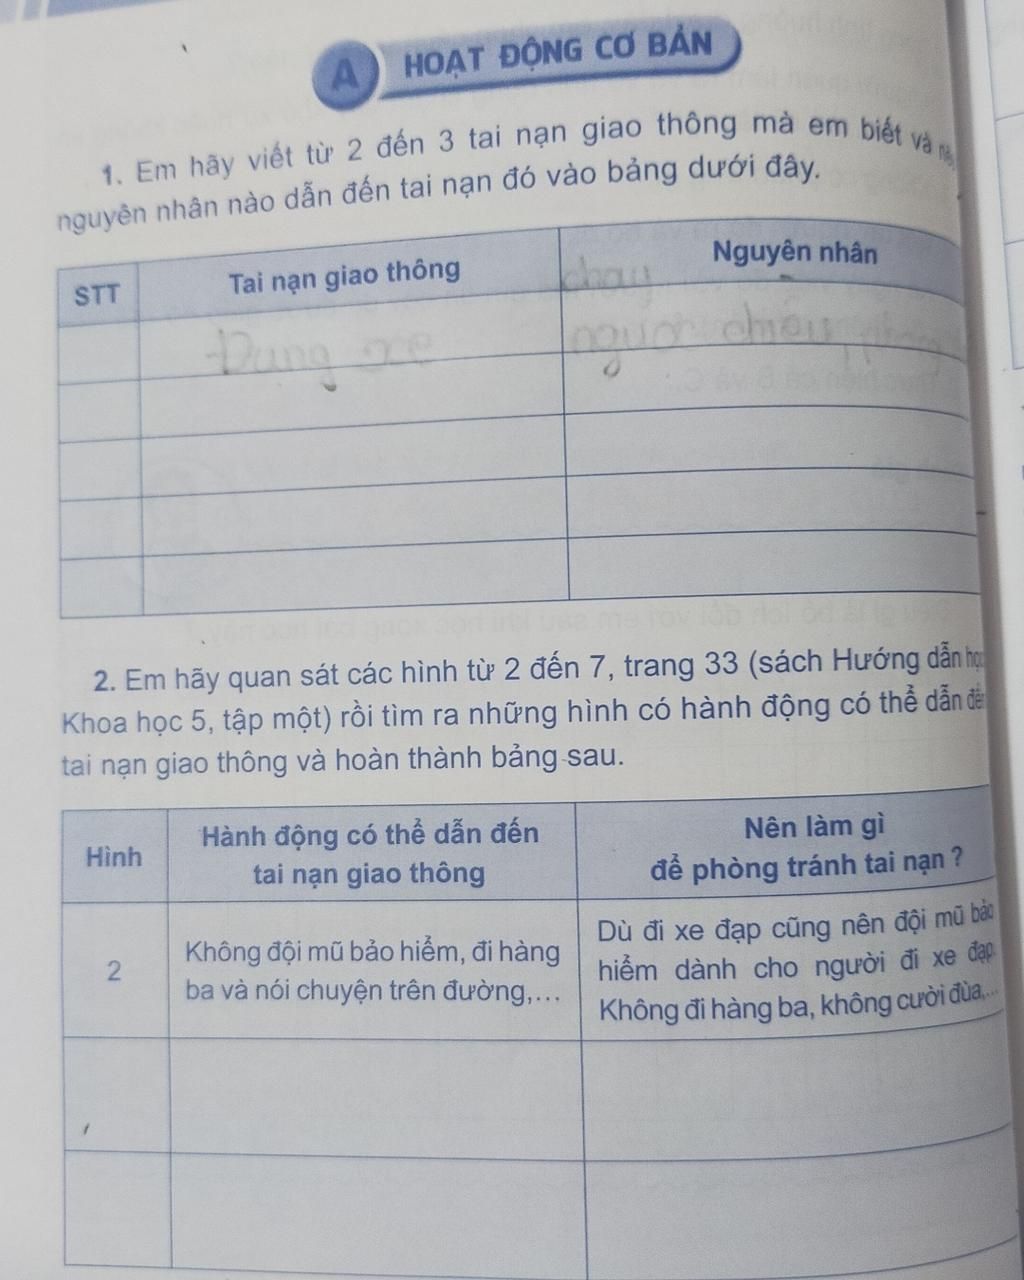 A HOẠT ĐỘNG CƠ BẢN
1. Em hãy viết từ 2 đến 3 tai nạn giao thông mà em biết và
nguyên nhân nào dẫn đến tai nạn đó vào bảng dưới đây.
STT
Tai nạn giao thông
Nguyên nhân
Đụng xe
chạy
ngược chiều
2. Em hãy quan sát các hình từ 2 đến 7, trang 33 (sách Hướng dẫn học
Khoa học 5, tập một) rồi tìm ra những hình có hành động có thể dẫn đến
tai nạn giao thông và hoàn thành bảng sau.
Hình
Hành động có thể dẫn đến
tai nạn giao thông
Nên làm gì
để phòng tránh tai nạn ?
2
Không đội mũ bảo hiểm, đi hàng
ba và nói chuyện trên đường,...
Dù đi xe đạp cũng nên đội mũ bảo
hiểm dành cho người đi xe đạp.
Không đi hàng ba, không cười đùa,...